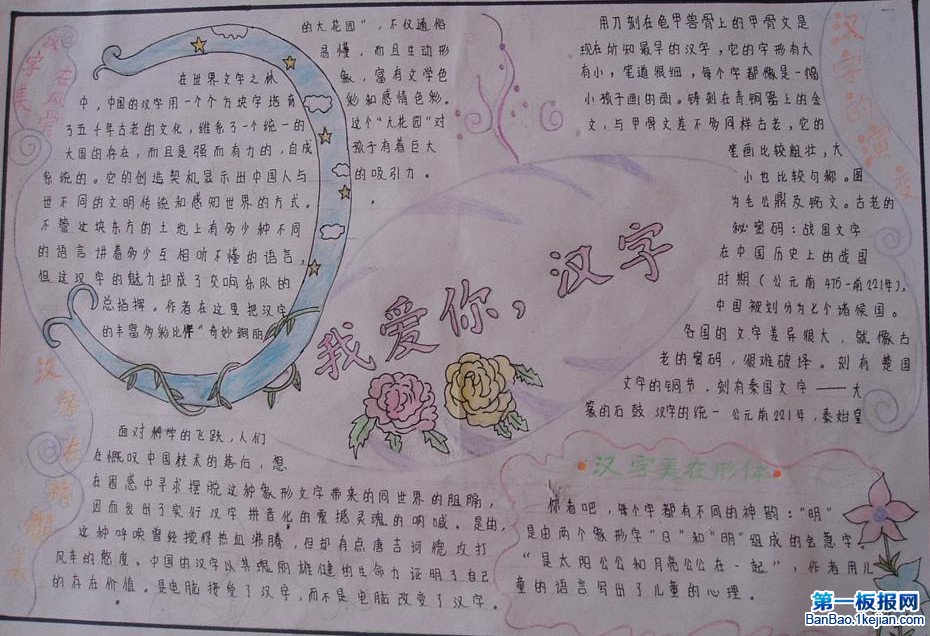 汉字美在风骨
在世界文字之林
中，中国的汉字用一个个方块字培育
了五千年古老的文化，维系了一个统一的
大国的存在，而且是强而有力的，自成
系统的。它的创造契机显示出中国人与
世不同的文明传统和感知世界的方式。
不管这块东方的土地上有多少种不同
的语言讲着多少互相听不懂的语言，
但这汉字的魅力却成了交响乐队的
总指挥。作者在这里把汉字
的丰富多彩比作"奇妙绚丽
的大花园"，不仅通俗
易懂，而且生动形
象，富有文学色
彩和感情色彩。
这个"大花园"对
孩子有着巨大
的吸引力。
我爱你，汉字
汉字的演变
用刀刻在龟甲兽骨上的甲骨文是
现在所知最早的汉字，它的字形有大
有小，笔道很细，每个字都像是一幅
小孩子画的画。铸刻在青铜器上的金
文，与甲骨文差不多同样古老，它的
笔画比较粗壮，大
小也比较匀称。图
为毛公鼎及铭文。古老的
秘密码：战国文字
在中国历史上的战国
时期（公元前475-前221年），
中国被划分为七个诸侯国。
各国的文字差异很大，就像古
老的密码，很难破译。刻有楚国
文字的铜节．刻有秦国文字——大
篆的石鼓 汉字的统一 公元前221年，秦始皇
面对科学的飞跃，人们
在慨叹中国技术的落后，想
在困惑中寻求摆脱这种象形文字带来的同世界的阻隔，
因而发出了实行汉字拼音化的震撼灵魂的呐喊。是由，
这种呼唤曾经搅得热血沸腾，但却有点唐吉诃德攻打
风车的憨度。中国的汉字以其瑰丽雄健的生命力证明了自己
的存在价值。是电脑接受了汉字，而不是电脑改变了汉字。
汉字美在形体
你看吧，每个字都有不同的神韵："明"
是由两个象形字"日"和"明"组成的会意字。
"是太阳公公和月亮公公在一起"，作者用儿
童的语言写出了儿童的心理。
第一板报网
BanBao.1kejian.com